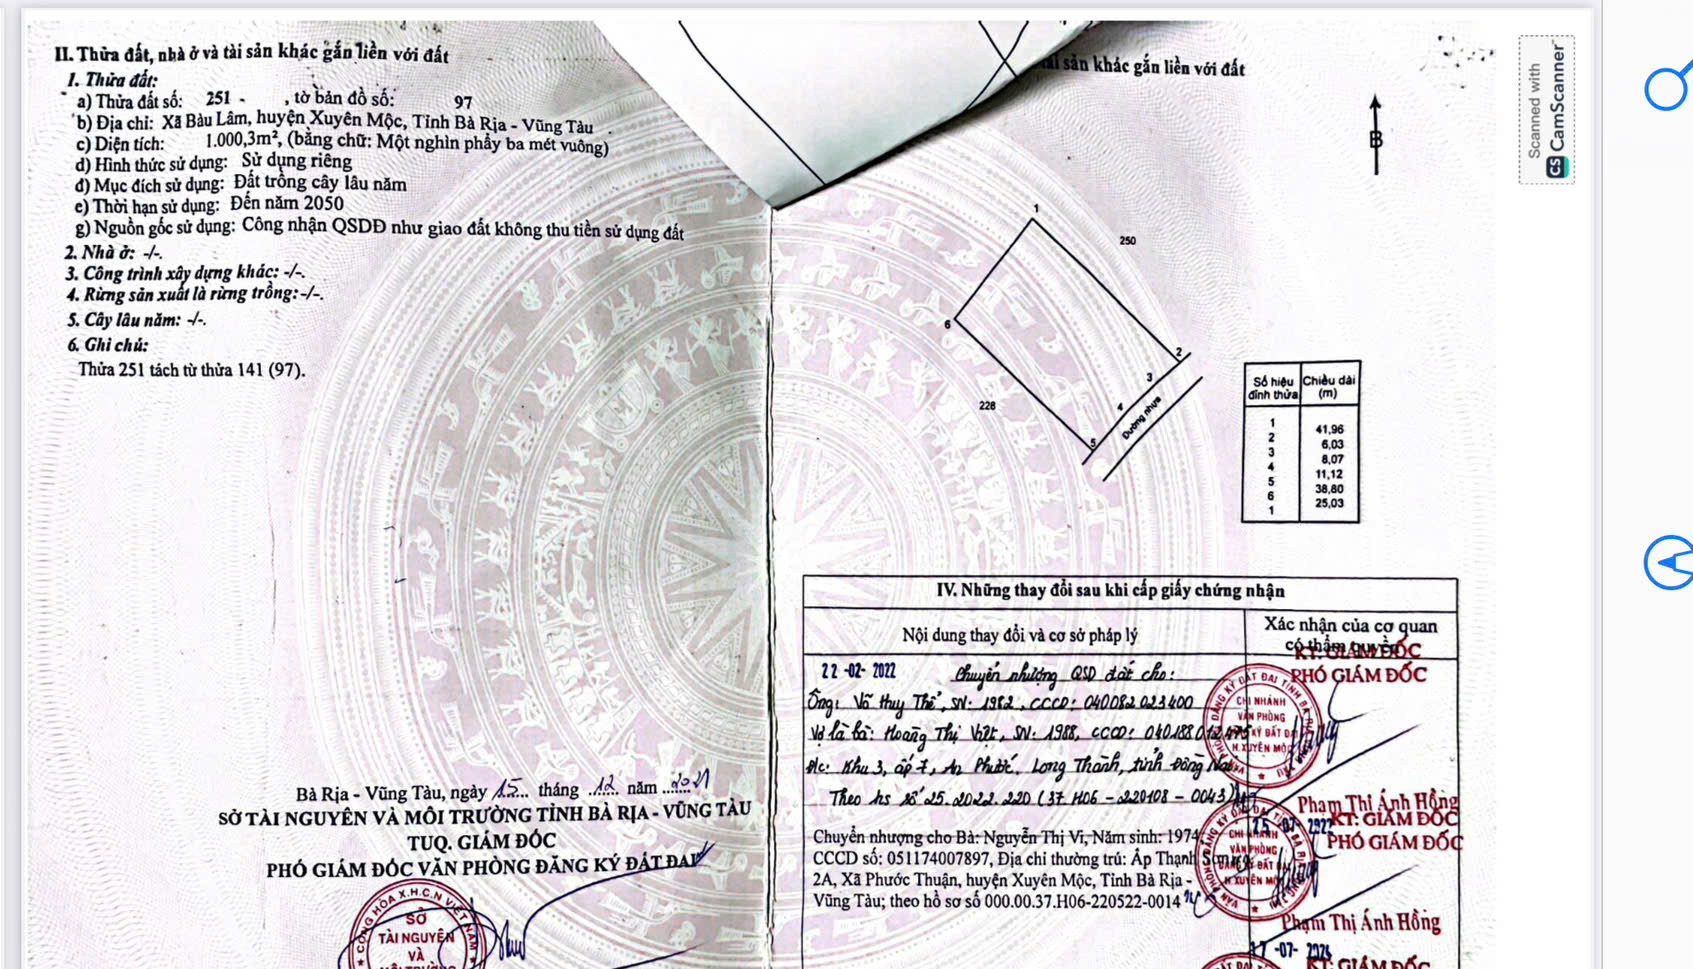 II. Thửa đất, nhà ở và tài sản khác gắn liền với đất
1. Thửa đất:
a) Thửa đất số: 251 , tờ bản đồ số: 97
b) Địa chỉ: Xã Bàu Lâm, huyện Xuyên Mộc, Tỉnh Bà Rịa - Vũng Tàu
c) Diện tích: 1.000,3m², (bằng chữ: Một nghìn phẩy ba mét vuông)
d) Hình thức sử dụng: Sử dụng riêng
đ) Mục đích sử dụng: Đất trồng cây lâu năm
e) Thời hạn sử dụng: Đến năm 2050
g) Nguồn gốc sử dụng: Công nhận QSDĐ như giao đất không thu tiền sử dụng đất
2. Nhà ở: -/-.
3. Công trình xây dựng khác: -/-.
4. Rừng sản xuất là rừng trồng: -/-.
5. Cây lâu năm: -/-.
6. Ghi chú:
Thửa 251 tách từ thửa 141 (97).
Bà Rịa - Vũng Tàu, ngày 15 tháng 12 năm 2021
SỞ TÀI NGUYÊN VÀ MÔI TRƯỜNG TỈNH BÀ RỊA - VŨNG TÀU
TUQ. GIÁM ĐỐC
PHÓ GIÁM ĐỐC VĂN PHÒNG ĐĂNG KÝ ĐẤT ĐAI
CỘNG HÒA X.H.C.N VIỆT NAM
SỞ
TÀI NGUYÊN
VÀ
tài sản khác gắn liền với đất
B
1
250
6
2
3
228
4
Đường nhựa
5
Số hiệu đỉnh thửa Chiều dài (m)
1
41,96
2
6,03
3
8,07
4
11,12
5
38,80
6
25,03
1
IV. Những thay đổi sau khi cấp giấy chứng nhận
Nội dung thay đổi và cơ sở pháp lý
Xác nhận của cơ quan
có thẩm quyền
22-02-2022 Chuyển nhượng QSD đất cho:
Ông: Võ Huy Thể, SN: 1982, CCCD: 040082023400
Vợ là bà: Hoàng Thị Việt, SN: 1988, CCCD: 040188012475
Đ/c: Khu 3, ấp 7, An Phước, Long Thành, tỉnh Đồng Nai
Theo hs số 25.2022.220 (37.H06-220108-0043)
KT. GIÁM ĐỐC
PHÓ GIÁM ĐỐC
CHI NHÁNH
VĂN PHÒNG
H. XUYÊN MỘC
Phạm Thị Ánh Hồng
Chuyển nhượng cho Bà: Nguyễn Thị Vi, Năm sinh: 1974
CCCD số: 051174007897, Địa chỉ thường trú: Ấp Thạnh Sơn
2A, Xã Phước Thuận, huyện Xuyên Mộc, Tỉnh Bà Rịa -
Vũng Tàu; theo hồ sơ số 000.00.37.H06-220522-0014
KT. GIÁM ĐỐC
PHÓ GIÁM ĐỐC
CHI NHÁNH
VĂN PHÒNG
H. XUYÊN MỘC
Phạm Thị Ánh Hồng
17-07-2024
KT. GIÁM ĐỐC
Scanned with
CS CamScanner